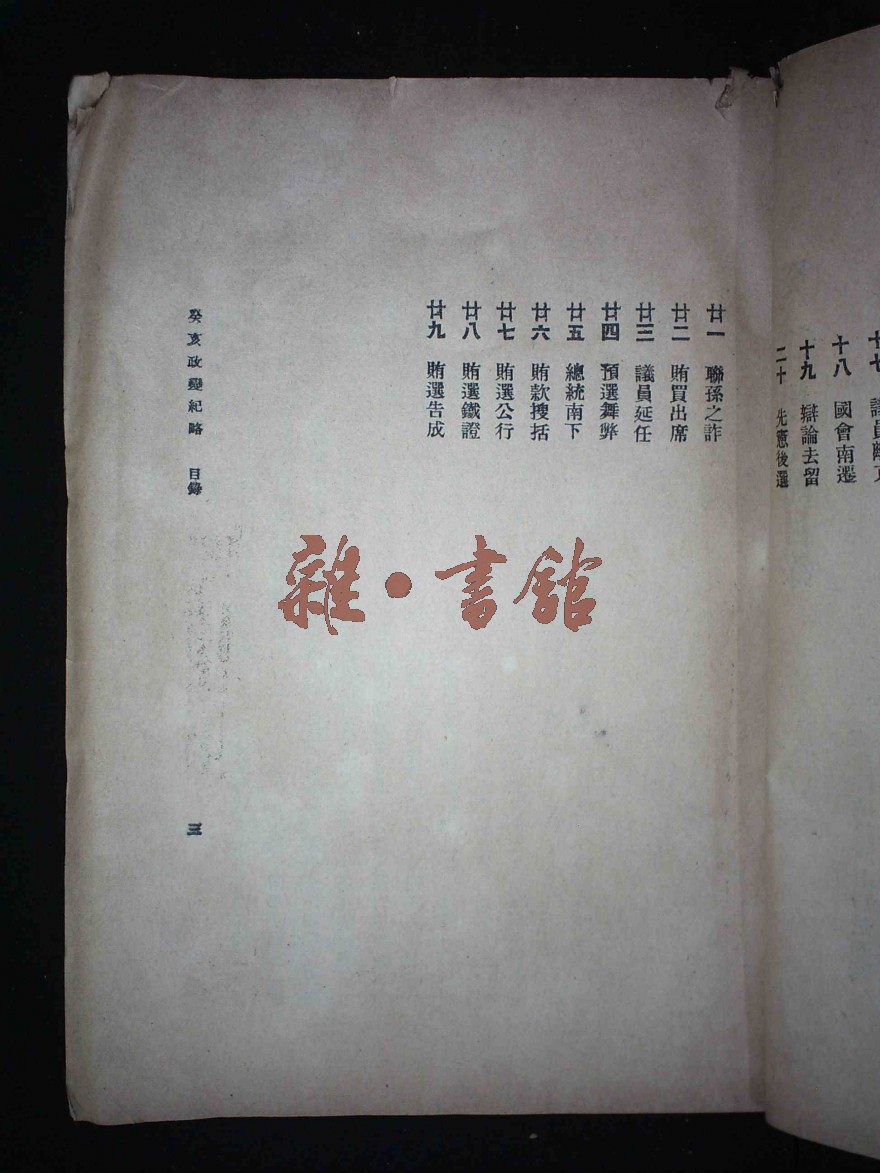 十七 議員
十八 國會南遷
十九 辯論去留
二十 先憲後選
廿一 聯孫之詐
廿二 賄買出席
廿三 議員延任
廿四 預選舞弊
廿五 總統南下
廿六 賄款搜括
廿七 賄選公行
廿八 賄選鐵證
廿九 賄選告成
癸亥政變紀略 目錄 三
雜·書館